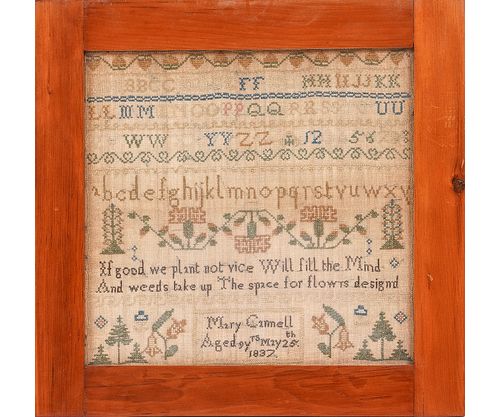 FF HH II JJ KK
LL M PP QQ UU
WW YY ZZ 12 56
abcdefghijklmnopqrstvuwxy
If good we plant not vice Will fill the Mind
And weeds take up The space for flowrs designd
Mary Cannell
Aged 9 yrs May 25th
1837